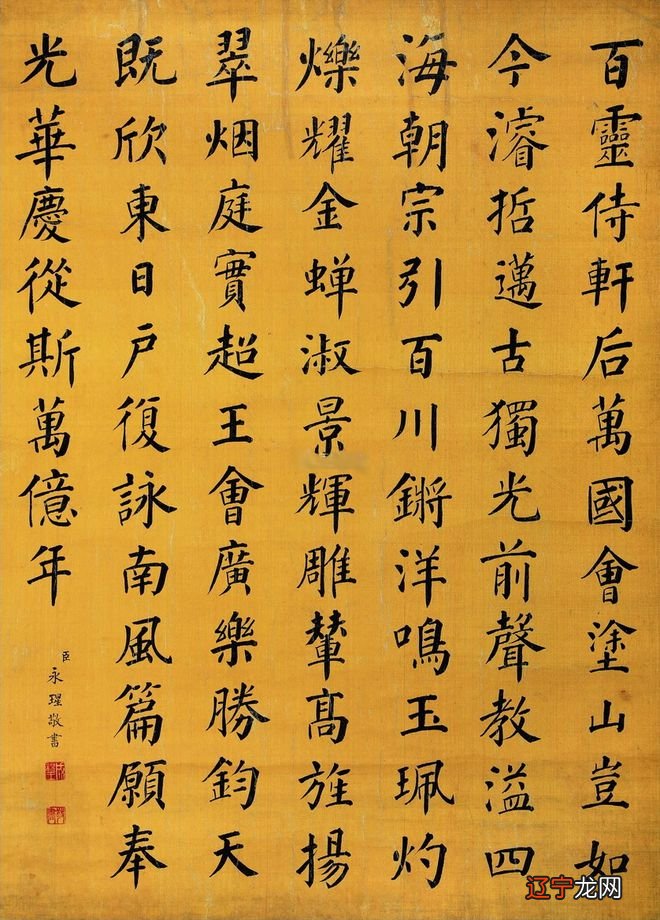 百靈侍軒后萬國會塗山豈如
今濬哲邁古獨光前聲教溢四
海朝宗引百川鏘洋鳴玉珮灼
爍耀金蟬淑景輝雕輦髙旌揚
翠烟庭實超王會廣樂勝鈞天
既欣東日戶復詠南風篇願奉
光華慶從斯萬億年
臣永瑆敬書
辽宁龙网